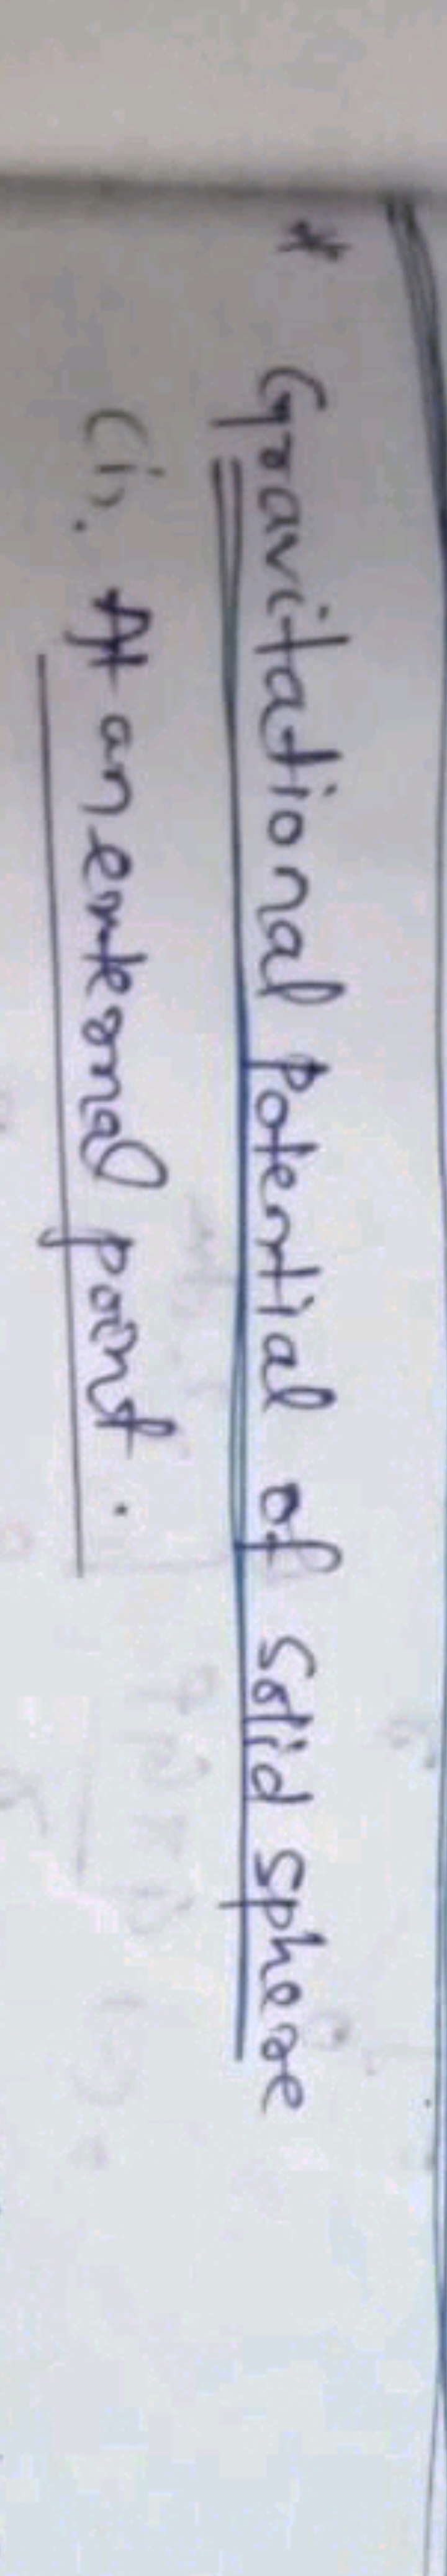 * Gravitational Potential of Solid sphere
(i). At an external point.